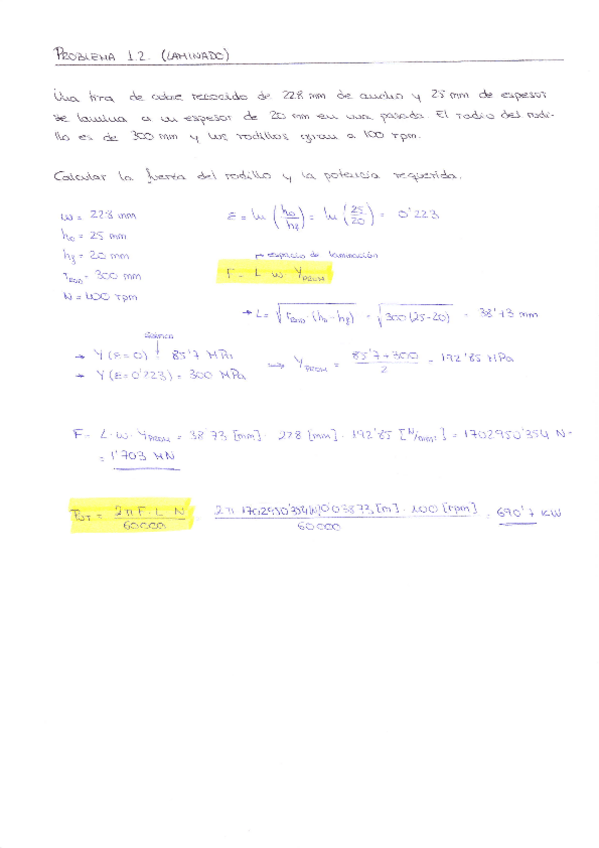 PROBLEMA 1.2. (LAMINADO)
Una tira de cobre recocido de 228 mm de ancho y 25 mm de espesor
se lamina a un espesor de 20 mm en una pasada. El radio del rodi-
llo es de 300 mm y los rodillos giran a 100 rpm.
Calcular la fuerza del rodillo y la potencia requerida.
w = 228 mm
ε = ln (h₀/h_f) = ln (25/20) = 0'223
h₀ = 25 mm
h_f = 20 mm
espacio de laminación
= 300 mm
F = L w Y_PROM
N = 100 rpm
→ L = √(r (h₀ - h_f)) = √(300 (25-20)) = 38'73 mm
→ Y (ε=0) 85'7 MPa
→ Y (ε=0'223) = 300 MPa
Y_PROM = (85'7 + 300)/2 = 192'85 MPa
F = L · w · Y_PROM = 38'73 [mm] · 228 [mm] · 192'85 [N/mm²] = 1702950'354 N
= 1'703 MN
= 2π F · L N / 60000 = 2π 1702950'354 [N] 0'03873 [m] · 100 [rpm] / 60000 = 690'7 KW